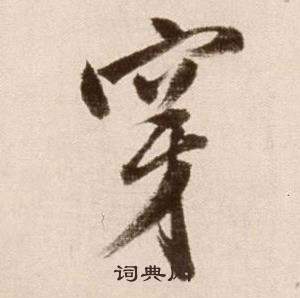 穿
词典网